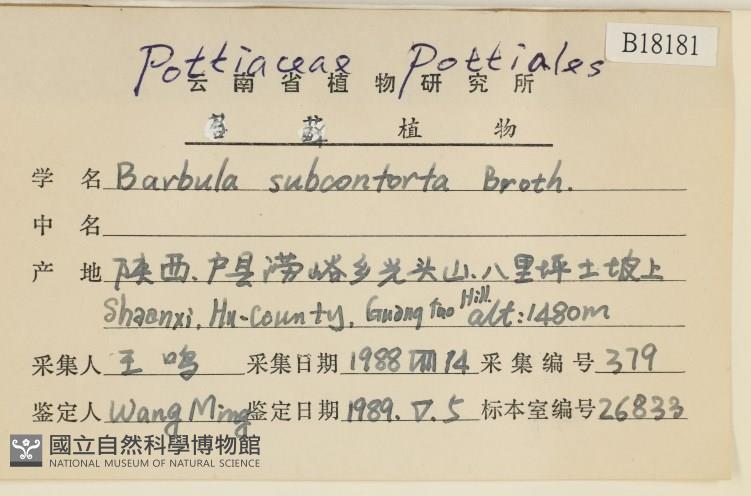 B18181
Pottiaceae Pottiales
云南省植物研究所
苔藓植物
学名 Barbula subcontorta Broth.
中名
产地 陕西、户县涝峪乡光头山、八里坪土坡上
Shaanxi, Hu-County, Guang Tao Hill. alt: 1480m
采集人 王鸣 采集日期 1988 VIII 14 采集编号 379
鉴定人 Wang Ming 鉴定日期 1989. V. 5 标本室编号 26833
國立自然科學博物館
NATIONAL MUSEUM OF NATURAL SCIENCE